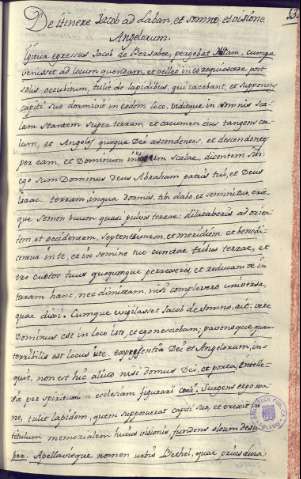 De itinere Jacob ad Laban, et somno, et visione
Angelorum.
egressus Jacob de Bersabee, pergebat Aram, cumque
venisset ad locum quendam, et vellet in eo requiescere post
solis occubitum, tulit de lapidibus, qui iacebant, et supponens
capiti suo dormivit in eodem loco. viditque in somnis sca-
lam stantem super terram, et cacumen eius tangens cæ-
lum, et Angelos quoque Dei ascendentes, et descendentes
per eam, et Dominum scalæ, dicentem sibi
ego sum Dominus Deus Abraham patris tui, et Deus
Isaac. terram in qua dormis tibi dabo et semini tuo erit-
que semen tuum quasi pulvis terræ: dilataberis ad orien-
tem et occidentem, septentrionem, et meridiem et benedi-
centur in te, et in semine tuo cunctæ tribus terræ, et
ero custos tuus quoqunque perrexeris, et reducam te in
terram hanc nec dimittam, nisi complevero universa,
quæ dixi. Cumque vigilasset Jacob de somno, ait. vere
Dominus est in loco isto, et ego nesciebam, pavensque quam
terribilis est locus iste. Dei et Angelorum, in-
quit, non est hic aliud nisi domus Dei, et porta
per ecclesiam figurari Surgens ergo ma-
ne, tulit lapidem, quem supposuerat capiti suo, et erexit in
titulum memorialem huius visionis fundens oleum desu-
per. Apellavitque nomen urbis Bethel, quæ prius